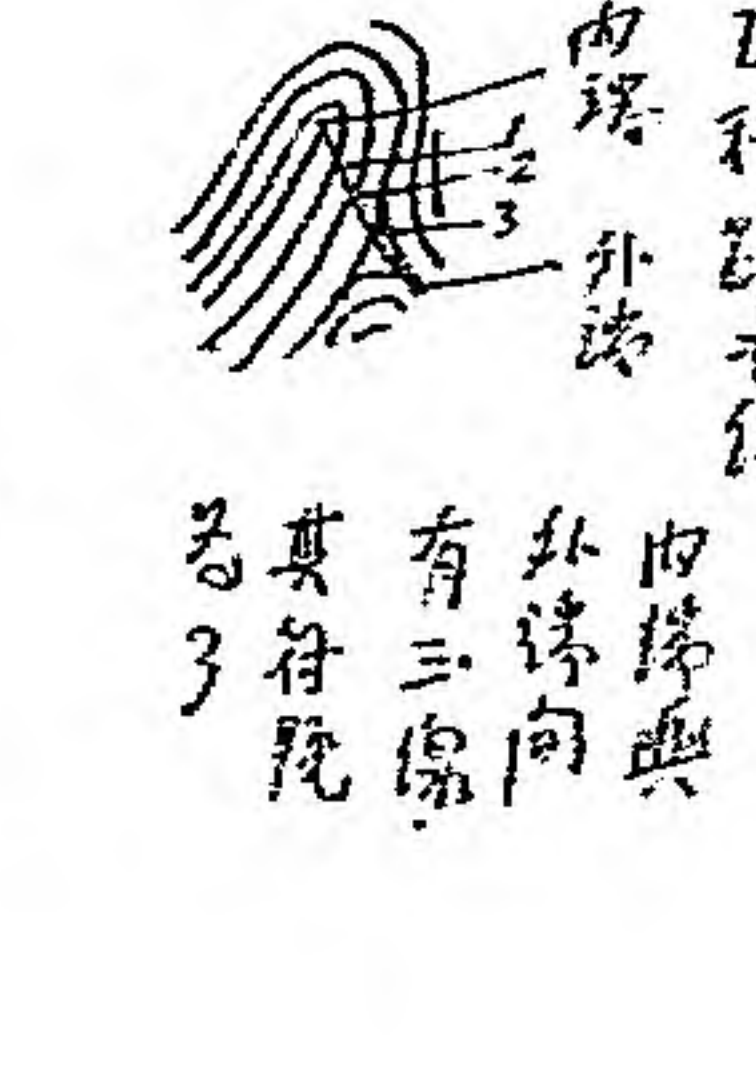 内端
1
2
3
外端
内端與
外端向
有三線
其符號
為3